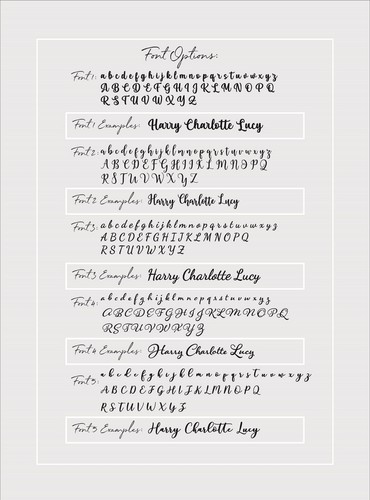 Font Options:
Font 1: abcdefghijklmnopqrstuvwxyz
ABCDEFGHIJKLMNOPQ
RSTUVWXYZ
Font 1 Examples: Harry Charlotte Lucy
Font 2: abcdefghijklmnopqrstuvwxyz
ABCDEFGHIJKLMNOPQ
RSTUVWXYZ
Font 2 Examples: Harry Charlotte Lucy
Font 3: abcdefghijklmnopqrstuvwxyz
ABCDEFGHIJKLMNOPQ
RSTUVWXYZ
Font 3 Examples: Harry Charlotte Lucy
Font 4: abcdefghijklmnopqrstuvwxyz
ABCDEFGHIJKLMNOPQ
RSTUVWXYZ
Font 4 Examples: Harry Charlotte Lucy
Font 5: abcdefghijklmnopqrstuvwxyz
ABCDEFGHIJKLMNOPQ
RSTUVWXYZ
Font 5 Examples: Harry Charlotte Lucy